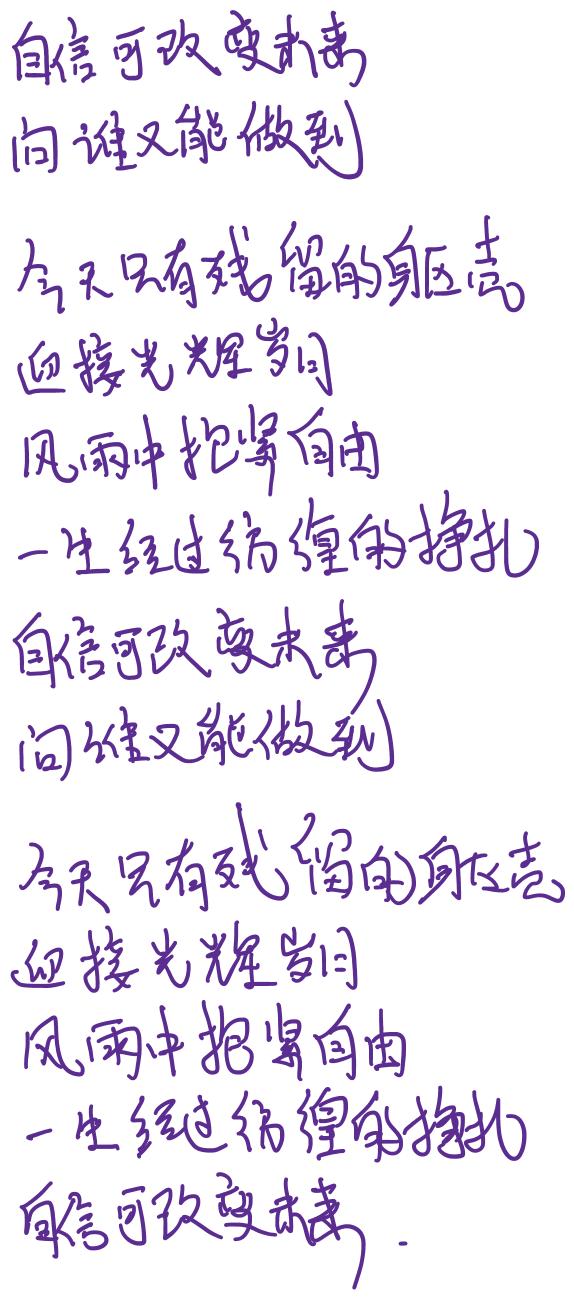 自信可改变未来
问谁又能做到
今天只有残留的躯壳
迎接光辉岁月
风雨中抱紧自由
一生经过彷徨的挣扎
自信可改变未来
问谁又能做到
今天只有残留的躯壳
迎接光辉岁月
风雨中抱紧自由
一生经过彷徨的挣扎
自信可改变未来.